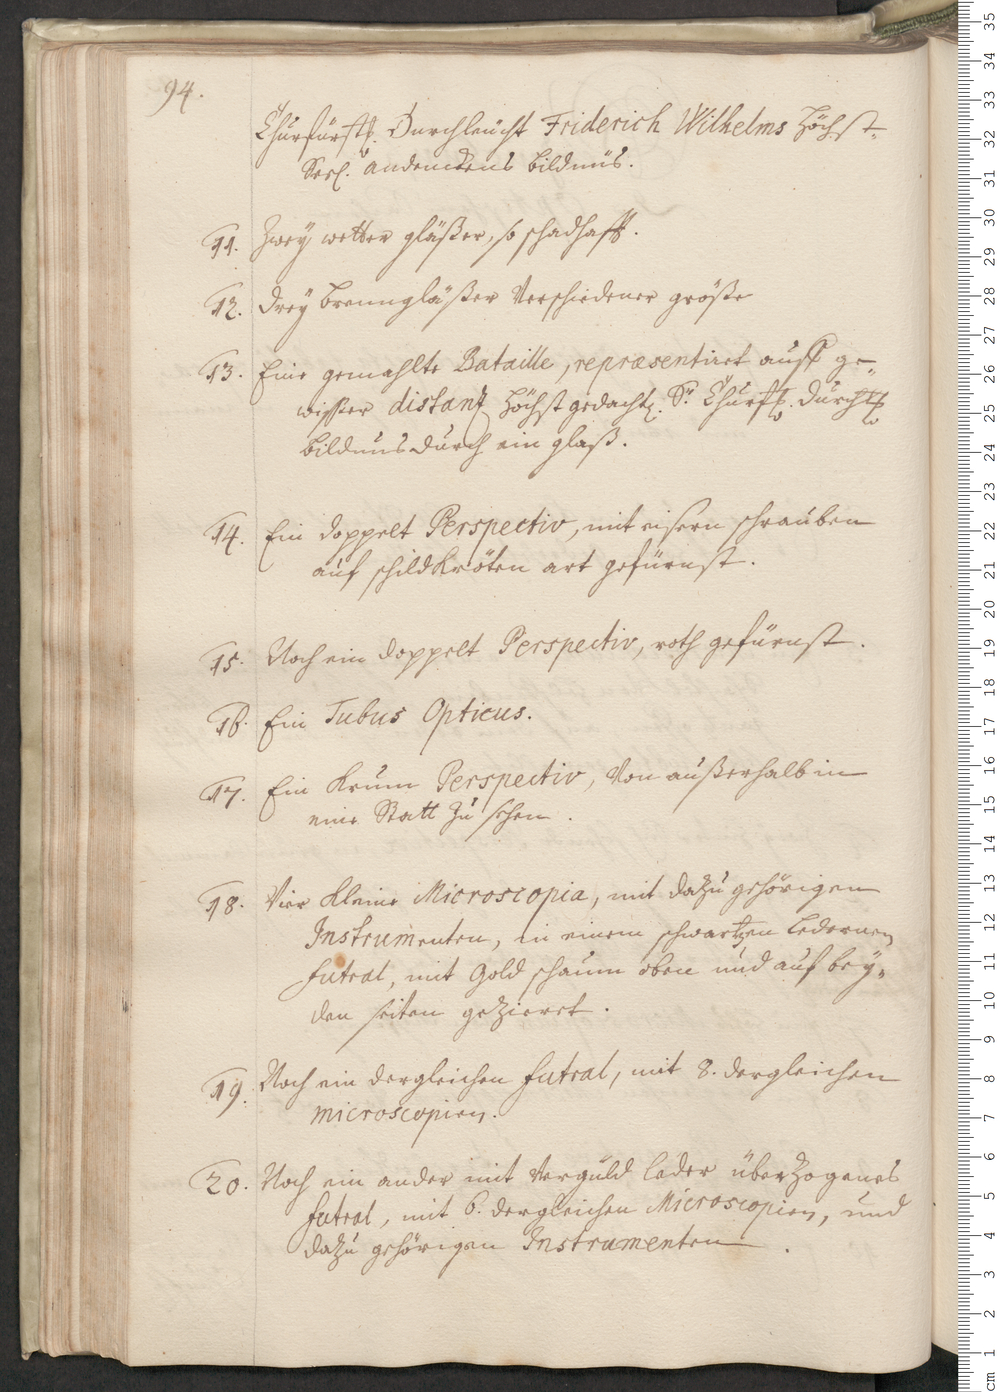 94.
Churfürstl. Durchleücht Friderich Wilhelms Höchst-
Seel. andenckens bildnüs.
11. Zwey wetter gläßer, so schadhafft.
12. Drey brenngläßer Verschiedener größe
13. Eine gemahlte Bataille, repræsentiret auff ge-
wißer distanz Höchstgedacht. Sr. Churfl. Durchl.
bildnus durch ein glaß.
14. Ein doppelt Perspectiv, mit eisern schrauben
auf schildkröten art gefürnst.
15. Noch ein doppelt Perspectiv, roth gefürnst.
16. Ein Tubus Opticus.
17. Ein krum Perspectiv, Von außerhalb in
eine Statt zu sehen.
18. Vier kleine Microscopia, mit dazu gehörigen
Instrumenten, in einem schwartzen ledernen
futral, mit Gold schaum oben und auf bey-
den seiten gezieret.
19. Noch ein dergleichen futral, mit 8. dergleichen
microscopien.
20. Noch ein ander mit Verguld leder überzogenes
futral, mit 6. dergleichen Microscopien, und
dazu gehörigen Instrumenten.
cm 1 2 3 4 5 6 7 8 9 10 11 12 13 14 15 16 17 18 19 20 21 22 23 24 25 26 27 28 29 30 31 32 33 34 35